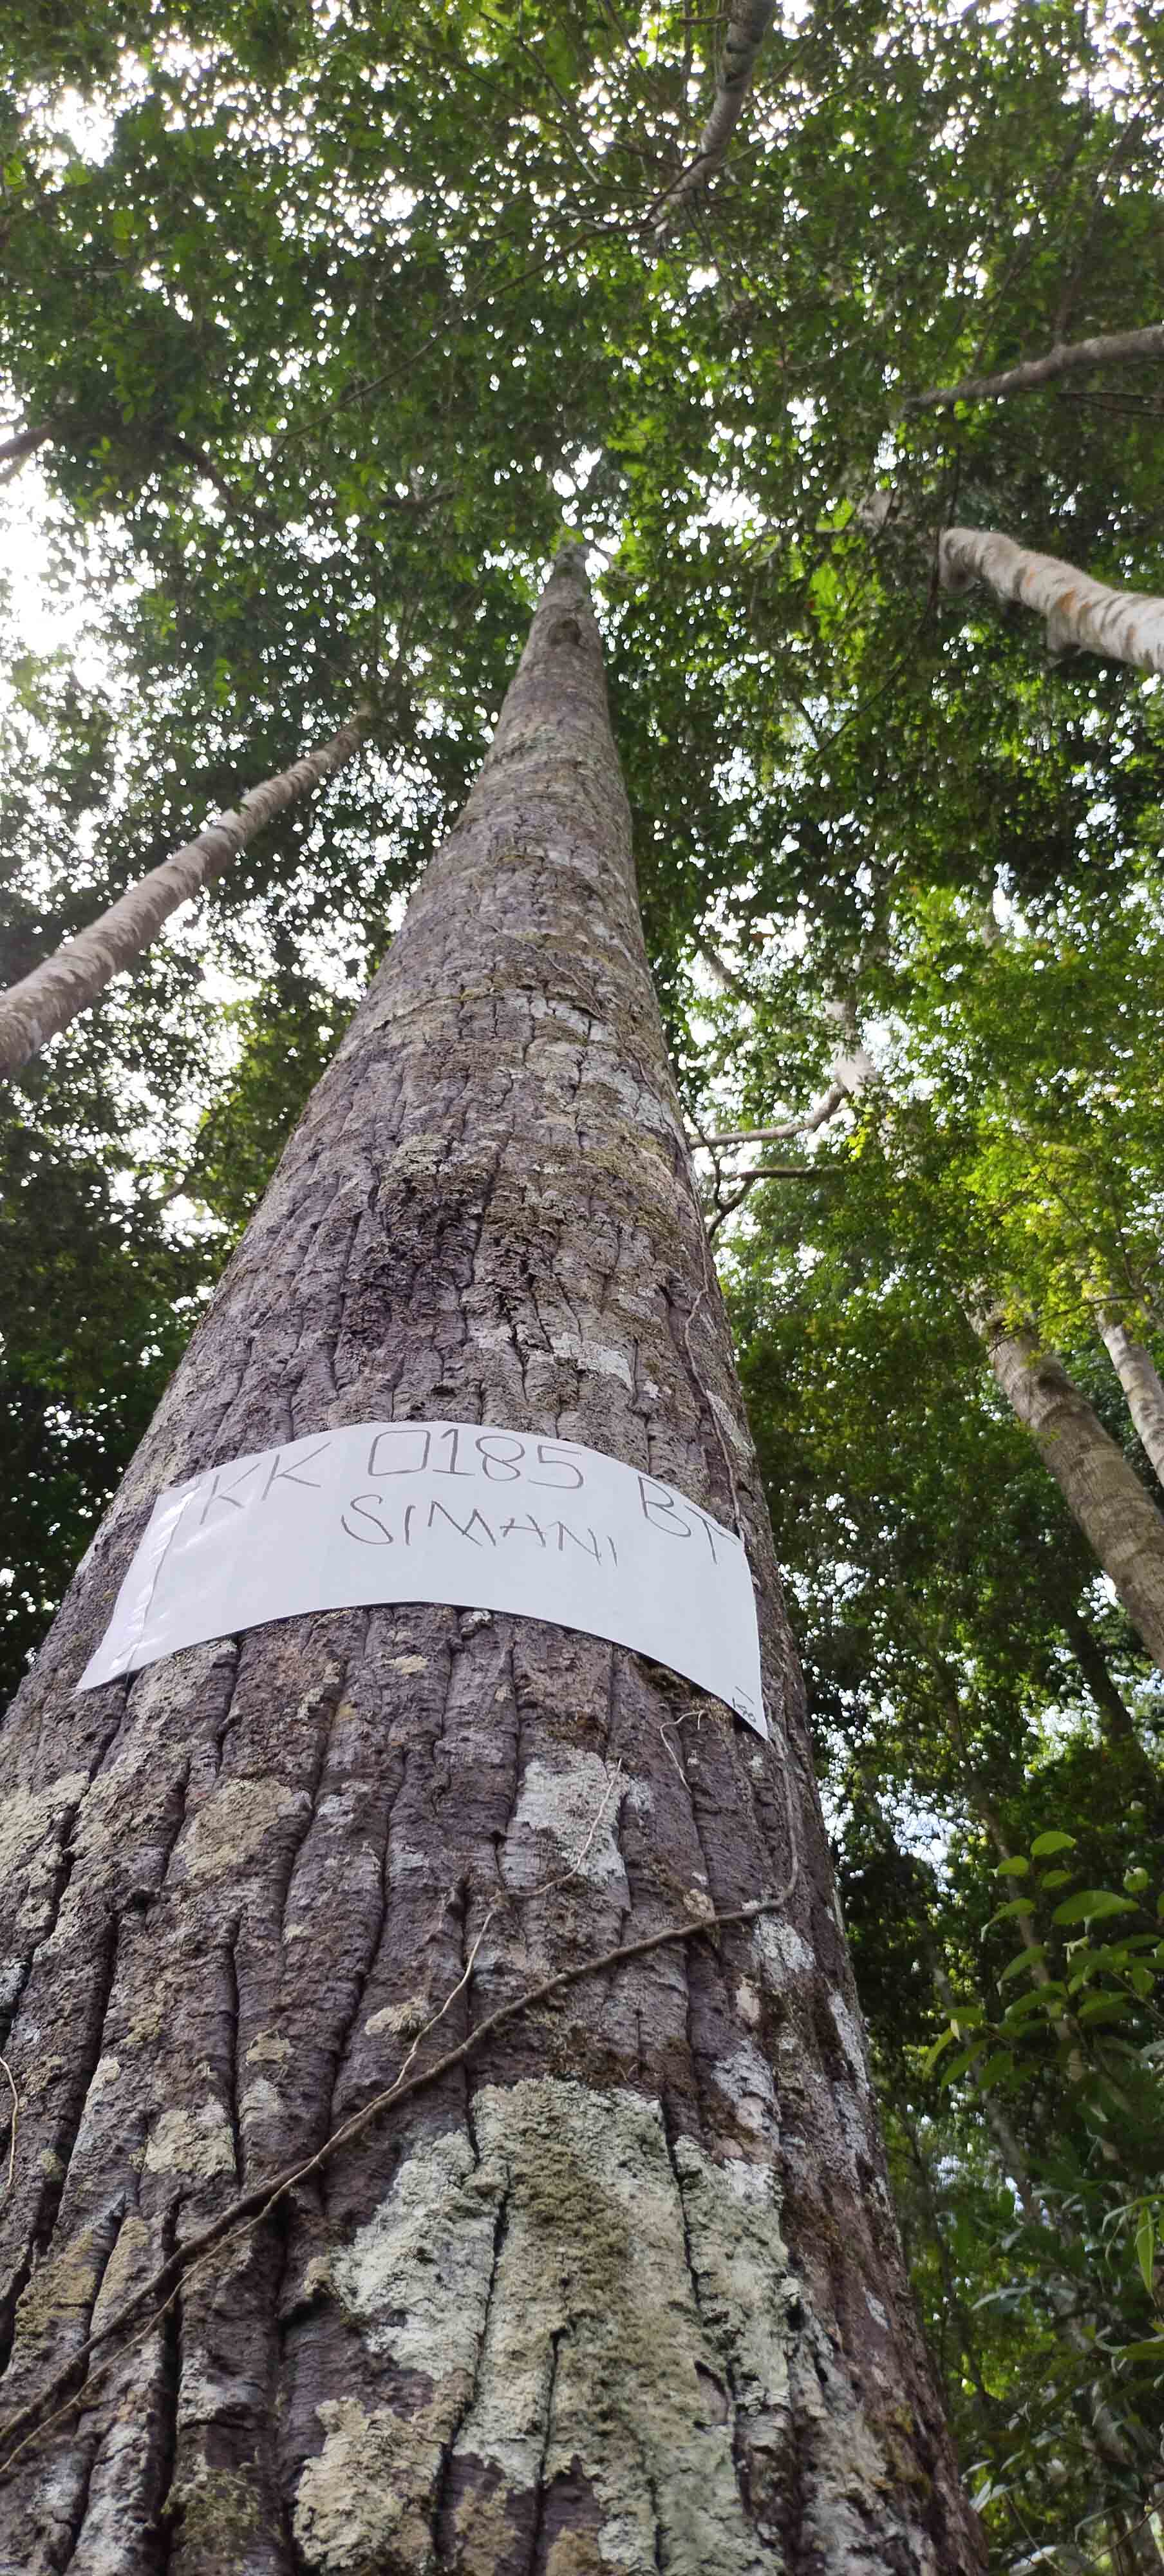 KK 0185 BT
SIMANI